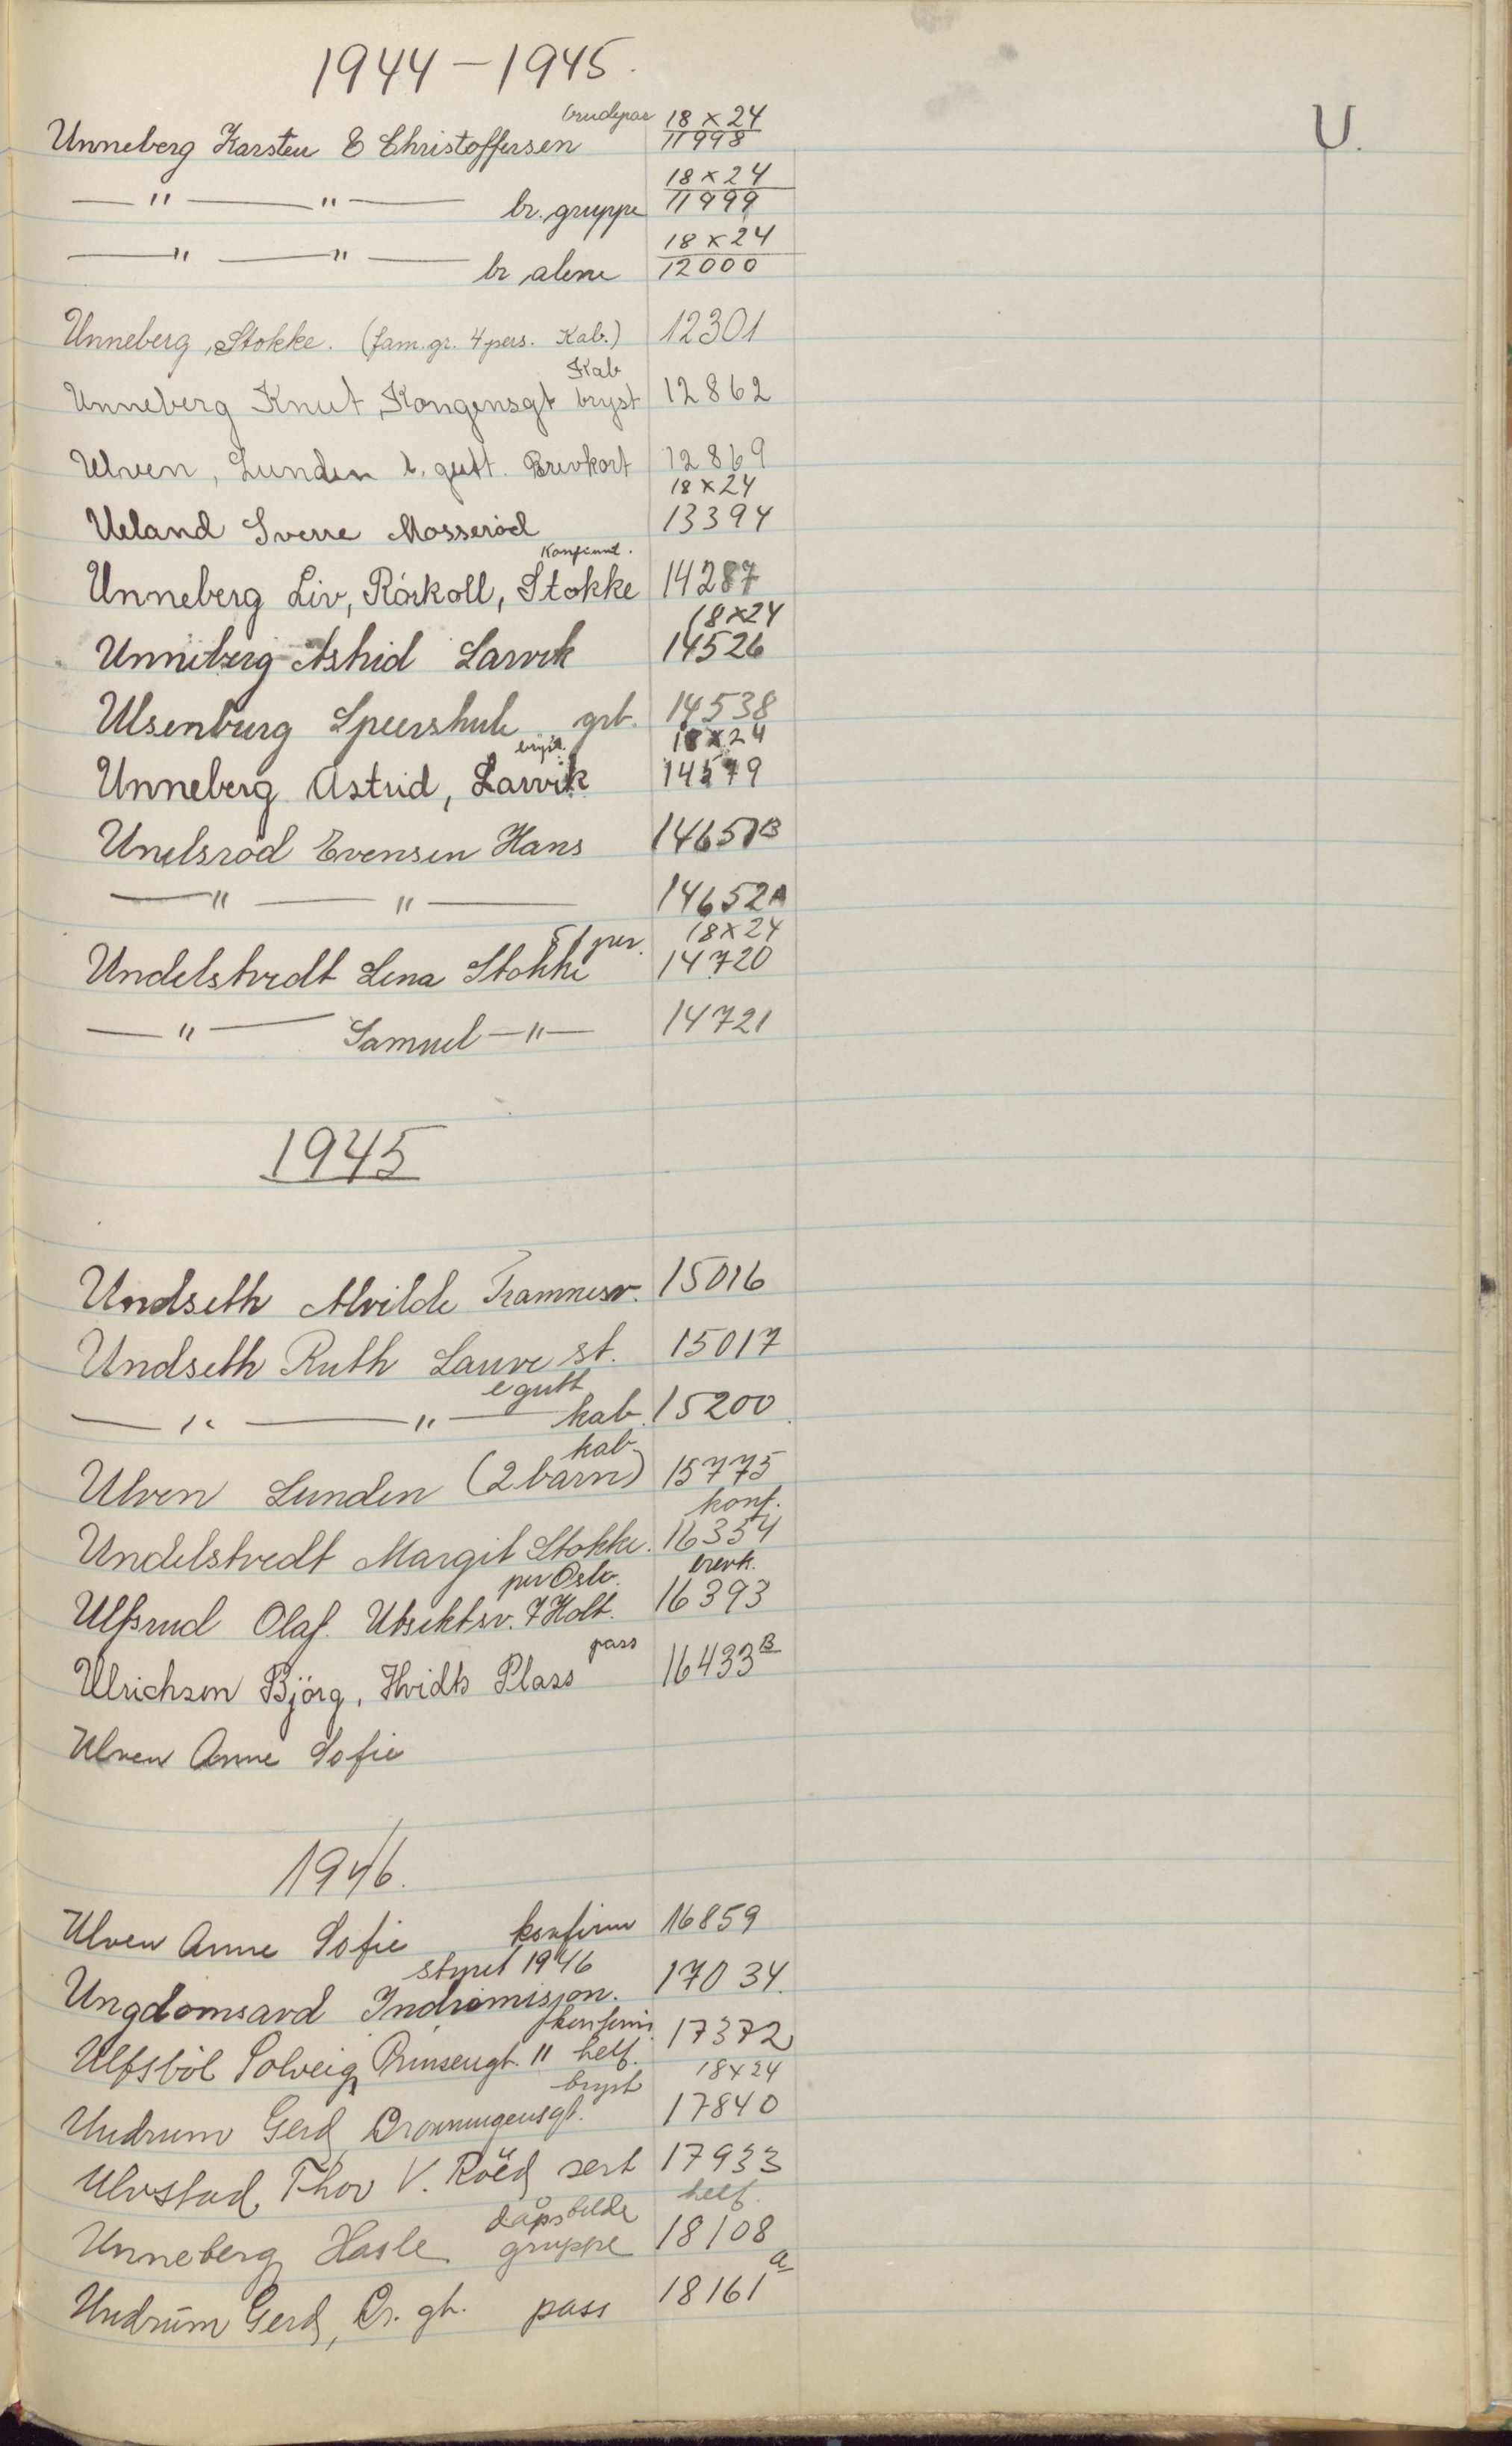 1944 – 1945.
U.
brudepar 18 x 24
Unneberg Karsten & Christoffersen 11998
18 x 24
— " — " — br. gruppe 11999
18 x 24
— " — " — br alene 12000
Unneberg, Stokke. (fam. gr. 4 pers. Kab.) 12301
Kab
Unneberg Knut, Kongensgt bryst 12862
Ulven, Lunden l. gutt. Brevkort 12869
18 x 24
Ueland Sverre Mosserød 13394
Konfirmt.
Unneberg Liv, Rörkoll, Stokke 14287
18 x 24
Unneberg Astrid Larvik 14526
Ulsenburg Speershule grt. 14538
bryst. 18 x 24
Unneberg Astrid, Larvik 14579
Unelsrød Evensen Hans 14651B
— " — " — 14652A
18 x 24
Undelstvedt Lena Stokke 14720
— " — Samuel — " — 14721
1945
Undseth Alvilde Framnesv. 15016
Undseth Ruth Lauve st. 15017
e gutt
— " — " — kab. 15200
kab.
Ulven Lunden (2 barn) 15775
konf.
Undelstvedt Margit Stokke. 16354
per Oslo. brevk.
Ulfsrud Olaf. Utsiktsv. 7 Holt. 16393
pass
Ulrichsen Björg, Hvidts Plass 16433B
Ulven Anne Sofie
1946.
Ulven Anne Sofie konfirm 16859
styret 1946
Ungdomsavd Indremisjon. 17034.
konfirm.
Ulfsböl Solveig, Prinsensgt. 11 helf. 17372
bryst 18 x 24
Undrum Gerd, Dronningensgt. 17840
Ulvstad, Thor V. Röed sert 17933
dåpsbilde helf.
Unneberg, Hasle gruppe 18108
Undrum Gerd, Dr. gt. pass 18161a